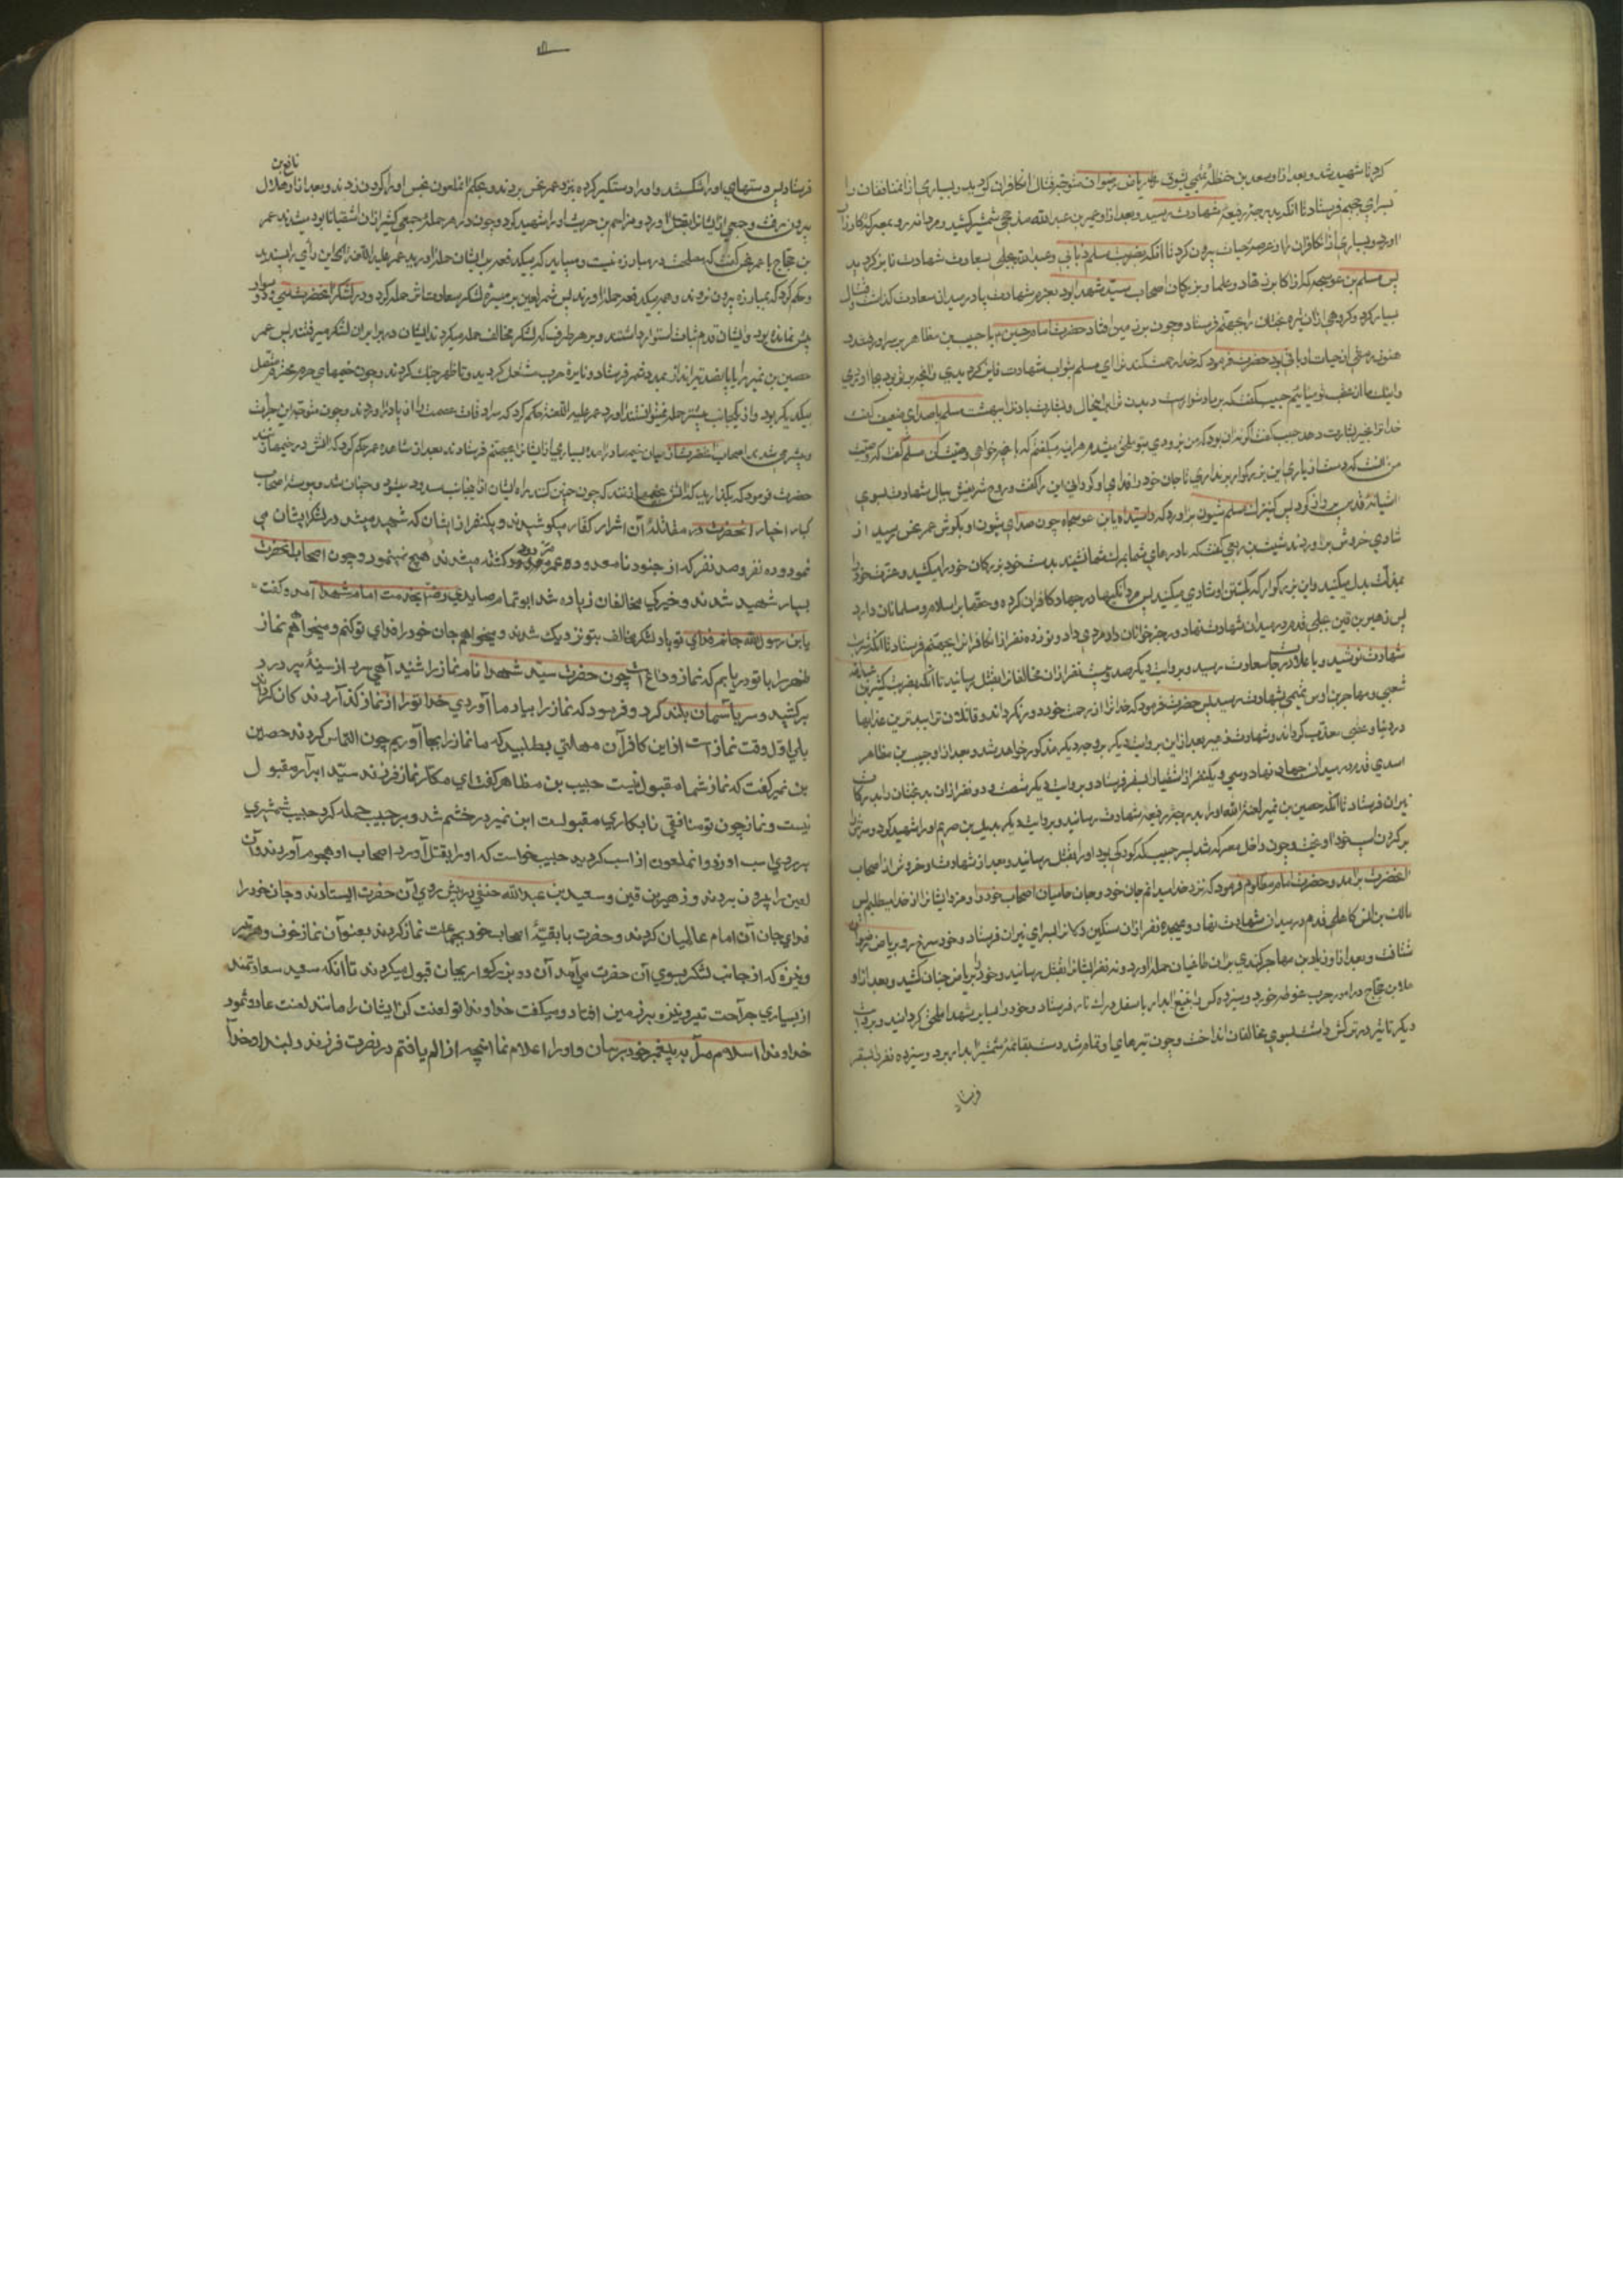 کرد تا شهید شد و بعد از او سعد بن حنظلهٔ تمیمی بشوق ریاض رضوان متوجه قتال آنکافران کردید و بسیاری از آنمنافقان را
بسرای جحیم فرستاد تا آنکه بدرجهٔ رفیعهٔ شهادت رسید و بعد از او عمیر بن عبدالله مذحجی شمشیر کشید و مردانه رو بمعرکه کارزار
آورد و بسیاری از آنکافران را از عرصهٔ حیات بیرون کرد تا آنکه بضرب مسلم ضبابی و عبدالله بجلی بسعادت شهادت فایز کردید
پس مسلم بن عوسجه که از اکابر زهاد و علما و بزرکان اصحاب سید شهدا بود بعزم شهادت پا در میدان سعادت کذاشت و قتال
بسیار کرد و کروهی از آن تیره بختان را بجهنم فرستاد و چون بر زمین افتاد حضرت امام حسین با حبیب بن مظاهر بر سر او رفتند و
هنوز رمقی از حیات او باقی بود حضرت فرمود که خدا رحمت کند ترا ای مسلم بثواب شهادت فایز کردیدی و آنچه بر تو بود بجا آوردی
و اینک ما از عقب تو میائیم حبیب کفت که بر ما دشوارست دیدن تو باین حال و بشارت باد ترا ببهشت مسلم با صدای ضعیف کفت
خدا ترا بخیر بشارت دهد حبیب کفت اکر نه آن بود که من بزودی بتو ملحق میشدم هر آینه میکفتم که با هر چه خواهی وصیت کن مسلم کفت که وصیت
من آنست که دست از یاری این بزرکوار برنداری تا جان خود را فدای او کردانی این را کفت و روح شریفش ببال شهادت بسوی
آشیانهٔ قدس پرواز کرد پس کنیزک مسلم شیون برآورد که وا سیداه یابن عوسجاه چون صدای شیون او بکوش عمر نحس رسید از
شادی خروش برآوردند شبث بن ربعی کفت که مادرهای شما بمرک شما نشیند بدست خود بزرکان خود را میکشید و عزت خود را
بمذلت بدل میکنید و این بزرکوار که بکشتن او شادی میکنید پس مردانکیها در جهاد کافران کرده و حقها بر اسلام و مسلمانان دارد
پس زهیر بن قین بجلی قدم در میدان شهادت نهاد و رجز خوانان داد مردی داد و نوزده نفر از آنکافران بجهنم فرستاد تا آنکه شربت
شهادت نوشید و باعلا درجات سعادت رسید و بروایت دیکر صد و بیست نفر از آن مخالفان بقتل رسانید تا آنکه بضرب کثیر بن عبدالله
شعبی و مهاجر بن اوس تمیمی بشهادت رسید پس حضرت فرمود که خدا ترا از رحمت خود دور نکرداند و قاتلان ترا ببدترین عذابها
در دنیا و عقبی معذب کرداند و شهادت زهیر بعد از این بروایت دیکر بوجه دیکر مذکور خواهد شد و بعد از او حبیب بن مظاهر
اسدی قدم در میدان جهاد نهاد و سی و یکنفر از اشقیا را بسقر فرستاد و بروایت دیکر شصت و دو نفر از آن بدبختان را بدرکات
نیران فرستاد تا آنکه حصین بن نمیر لعنه الله او را بدرجهٔ رفیعهٔ شهادت رسانید و بروایت دیکر بدیل بن صریم او را شهید کرد و سرش را
بر کردن اسب خود آویخت و چون داخل معرکه شد پسر حبیب که کودکی بود او را بقتل رسانید و بعد از شهادت او خروش از اصحاب
آنحضرت برآمد و حضرت امام مظلوم فرمود که نزد خدا میدانم جان خود و جان حامیان اصحاب خود را و مزد ایشان را از خدا میطلبم پس
مالک بن انس کاهلی قدم در میدان شهادت نهاد و هیجده نفر از آن سنکین دلان را بسرای نیران فرستاد و خود سرخ رو بریاض رضوان
شتافت و بعد از او زیاد بن مهاجر کندی بر آن طاغیان حمله آورد و نه نفر ایشان را بقتل رسانید و خود را بریاض جنان کشید و بعد از او
هلال بن حجاج در امور حرب غوطه خورد و سیزده کس را بتیغ آبدار باسفل درک نار فرستاد و خود را بسایر شهدا ملحق کردانید و بروایت
دیکر تا تیر در ترکش داشت بسوی مخالفان انداخت و چون تیرهای او تمام شد دست بقائمهٔ شمشیر آبدار برد و سیزده نفر را بسقر
فرستاد
نافع بن
فرستاد پس دستهای او را شکستند و او را دستکیر کرده بنزد عمر نحس بردند و بحکم آنملعون نحس او را کردن زدند و بعد از او هلال
بیرون رفت و جمعی از ایشان را بقتل آورد و مزاحم بن حریث او را شهید کرد و چون در هر حملهٔ جمعی کثیر از آن اشقیا نابود میشدند عمر
بن حجاج با عمر نحس کفت که مصلحت در مبارزه نیست و میباید که بیکدفعه بر ایشان حمله آورید عمر علیه اللعنه این رأی را پسندید
و حکم کرد که بمبارزه بیرون نروند و همه بیکدفعه حمله آورند پس شمر لعین بن میسره لشکر سعادت اثر حمله کرد و در لشکر آنحضرت سی و دو سوار
بیش نمانده بود و ایشان قدم ثبات استوار داشتند و بر هر طرف که لشکر مخالف حمله میکردند ایشان در برابر آن لشکر میرفتند پس عمر
حصین بن نمیر را با پانصد تیرانداز بمدد شمر فرستاد و نایرهٔ حرب مشتعل کردید و تا ظهر جنک کردند و چون خیمهای حرم محترم متصل
بیکدیکر بود و از یکجانب بیشتر حمله نمیتوانستند آورد عمر علیه اللعنه حکم کرد که سرادقات عصمت را از پا درآوردند و چون متوجه این جرأت
و بیشرمی شدند اصحاب آنحضرت از میان خیمها درآمده بسیاری از ایشان را بجهنم فرستادند بعد از مشاهده عمر حکم کرد که آتش در خیمها زنند
حضرت فرمود که بکذارید که آتش بخیمها زنند که چون چنین کنند راه ایشان از آنجانب مسدود میشود و چنان شد و پیوسته اصحاب
کبار اخیار آنحضرت در مقاتلهٔ آن اشرار کفار میکوشیدند و یکنفر از ایشان که شهید میشد در لشکر ایشان می
نمود و ده نفر و صد نفر که از جنود نامعدود عمر مردود کشته میشدند هیچ نمینمود و چون اصحاب آنحضرت
بسیار شهید شدند و خیرکی مخالفان زیاده شد ابو تمام صایدی بخدمت امام شهدا آمد و کفت
یابن رسول الله جانم فدای تو باد لشکر مخالف بتو نزدیک شدند و میخواهم جان خود را فدای تو کنم و میخواهم نماز
ظهر را با تو دریابم که نماز وداع است چون حضرت سید شهدا نام نماز را شنید آهی سرد از سینهٔ پر درد
برکشید و سر بآسمان بلند کرد و فرمود که نماز را بیاد ما آوردی خدا تو را از نماز کذارندکان کرداند
بلی اول وقت نماز است از این کافران مهلتی بطلبید که ما نماز را بجا آوریم چون التماس کردند حصین
بن نمیر کفت که نماز شما مقبول نیست حبیب بن مظاهر کفت ای مکار نماز فرزند سید ابرار مقبول
نیست و نماز چون تو منافقی نابکاری مقبولست ابن نمیر در خشم شد و بر حبیب حمله کرد حبیب شمشیری
بر روی اسب او زد و آنملعون از اسب کردید حبیب خواست که او را بقتل آورد اصحاب او هجوم آوردند و آن
لعین را بیرون بردند و زهیر بن قین و سعید بن عبدالله حنفی در پیش روی آن حضرت ایستادند و جان خود را
فدای جان آن امام عالمیان کردند و حضرت با بقیهٔ اصحاب خود بجماعت نماز کردند بعنوان نماز خوف و هر تیر
و نیزه که از جانب لشکر بسوی آن حضرت می‌آمد آن دو بزرکوار بجان قبول میکردند تا آنکه سعید سعادتمند
از بسیاری جراحت تیر و نیزه بر زمین افتاد و میکفت خداوندا تو لعنت کن ایشان را مانند لعنت عاد و ثمود
خداوندا سلام مرا به پیغمبر خود برسان و او را اعلام نما آنچه از الم یافتم در نصرت فرزند دلبند او خدا